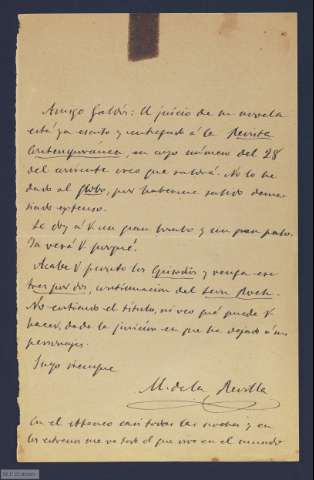 Amigo Galdós: El juicio de su novela
está ya escrito y entregado á la Revista
Contemporánea, en cuyo número del 28
del corriente creo que saldrá. No lo he
dado al Globo, por haberme salido dema-
siado extenso.
Le doy á V un gran bombo y un gran palo.
Ya verá V porqué.
Acabe V pronto los Episodios y venga ese
tres por dos, continuacion del Leon Roch.
No entiendo el título, ni veo qué puede V
hacer, dada la situacion en que ha dejado á sus
personajes.
Suyo siempre
M. de la Revilla
En el Ateneo casi todas las noches y en
los estrenos me va todo el que vive en el mundo